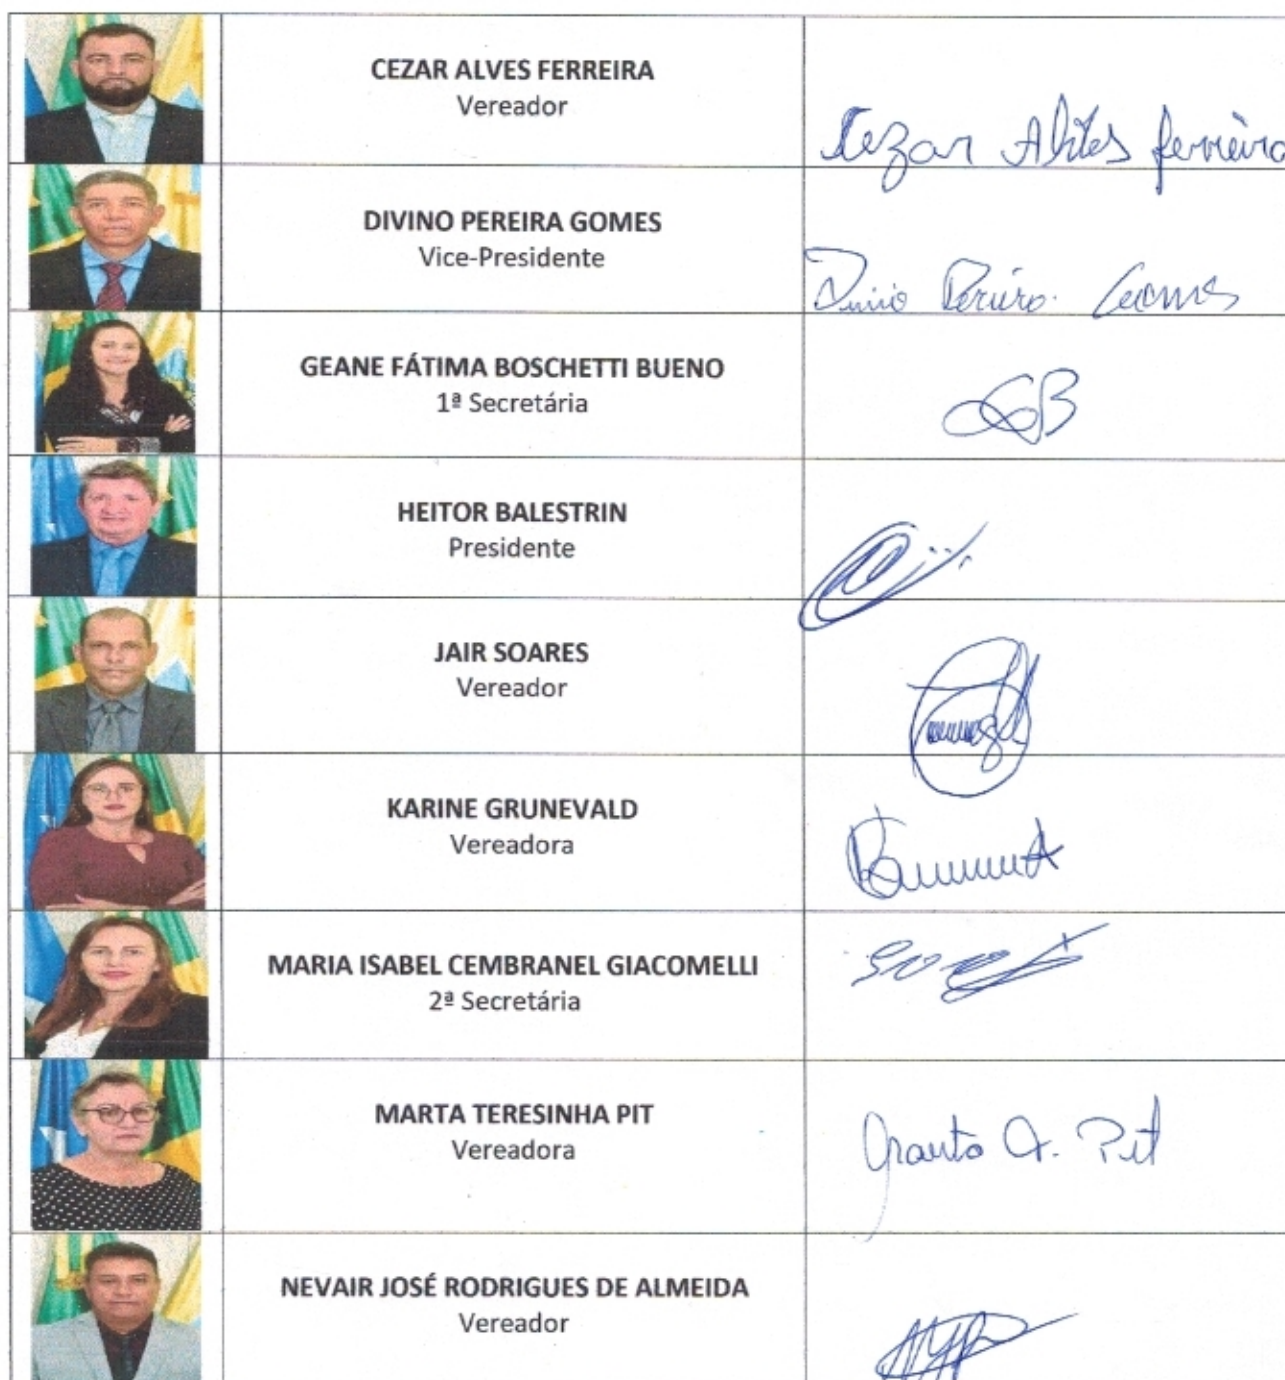 CEZAR ALVES FERREIRA
Vereador
Cezar Alves Ferreira
DIVINO PEREIRA GOMES
Vice-Presidente
Pereira Gomes
GEANE FÁTIMA BOSCHETTI BUENO
1ª Secretária
GB
HEITOR BALESTRIN
Presidente
JAIR SOARES
Vereador
KARINE GRUNEVALD
Vereadora
MARIA ISABEL CEMBRANEL GIACOMELLI
2ª Secretária
MARTA TERESINHA PIT
Vereadora
Marta T. Pit
NEVAIR JOSÉ RODRIGUES DE ALMEIDA
Vereador